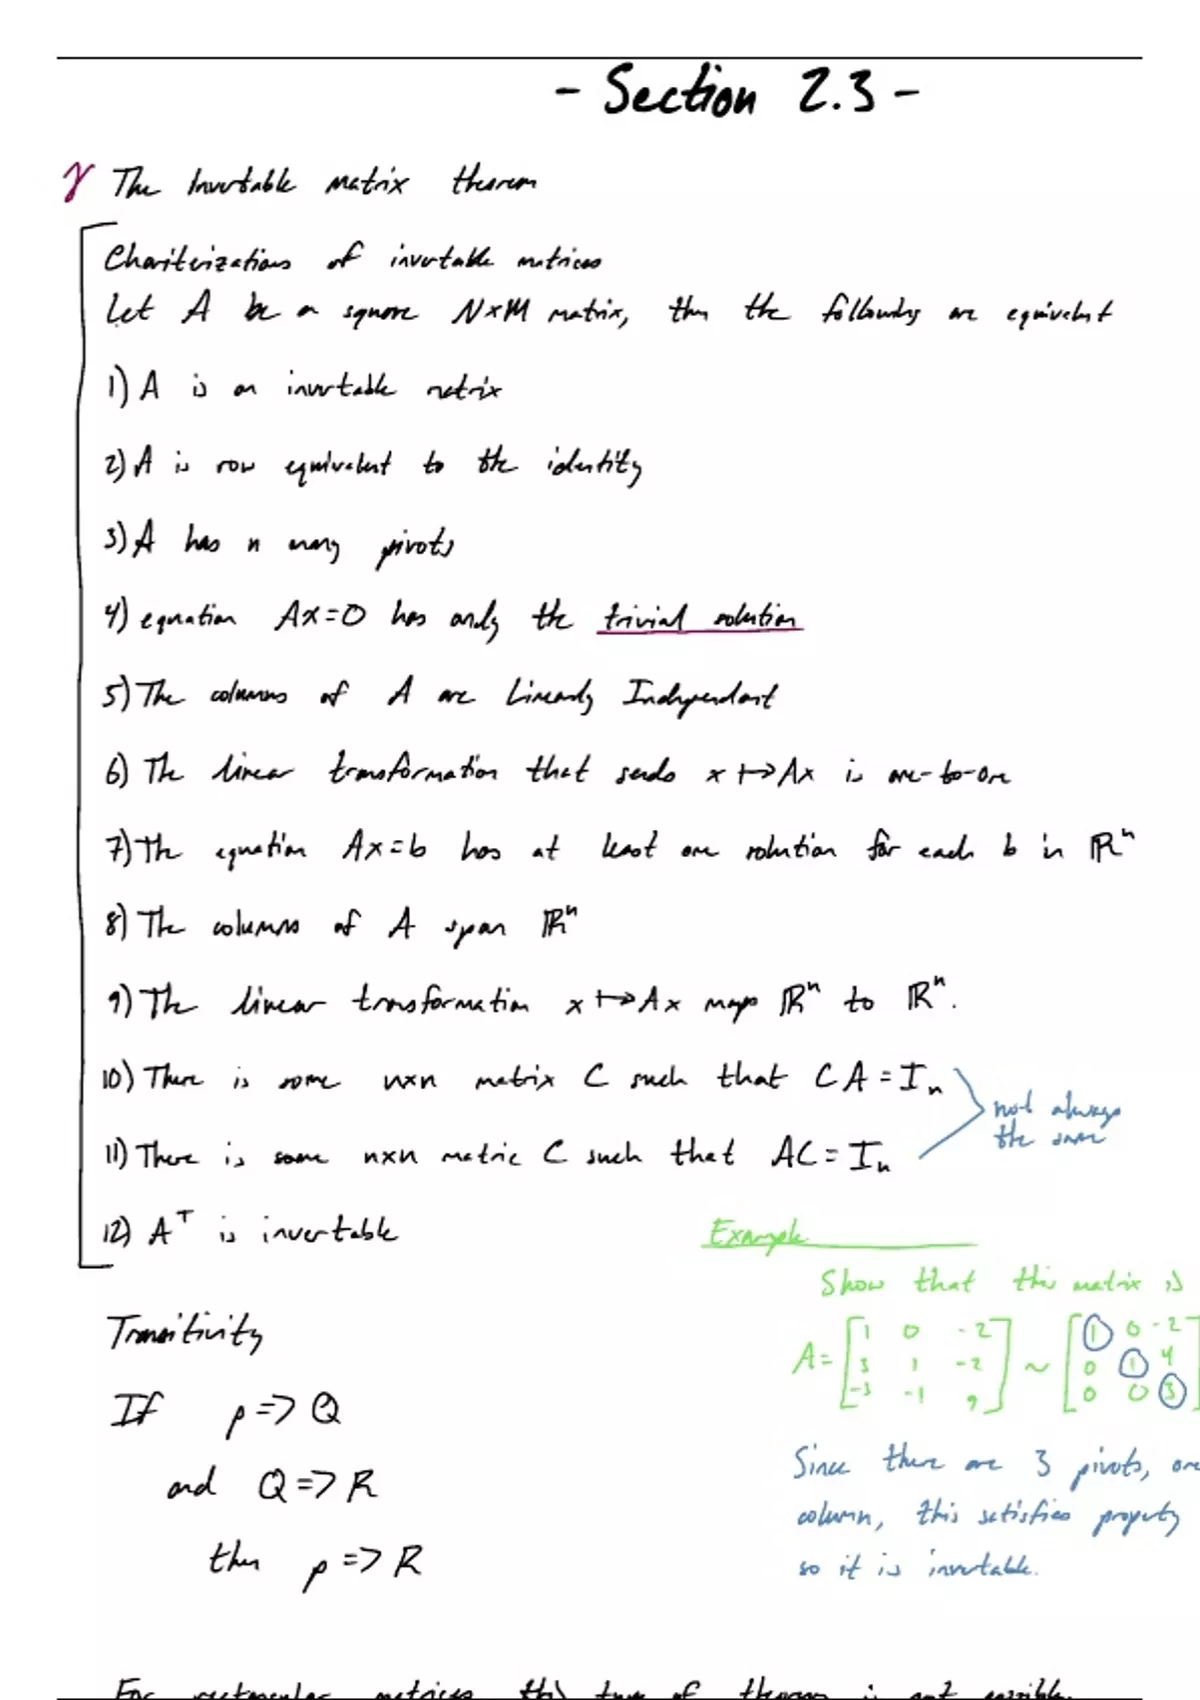 - Section 2.3 -
The Invertable matrix theorem
Chariterizations of invertable matrices
Let A be a square N×M matrix, then the following are equivalent
1) A is an invertable matrix
2) A is row equivalent to the identity
3) A has n many pivots
4) equation Ax=0 has only the trivial solution
5) The columns of A are Linearly Independant
6) The linear transformation that sends x ↦ Ax is one-to-one
7) The equation Ax=b has at least one solution for each b in ℝⁿ
8) The columns of A span ℝⁿ
9) The linear transformation x ↦ Ax maps ℝⁿ to ℝⁿ.
10) There is some n×n matrix C such that CA = Iₙ
not always
the same
11) There is some n×n matric C such that AC = Iₙ
12) Aᵀ is invertable
Example
Show that this matrix is
A = [1 0 -2 ~ [1 0 -2
3 1 -2 0 1 4
-3 -1 9] 0 0 3]
Since there are 3 pivots, one
column, this satisfies property
so it is invertable.
Transitivity
If p => Q
and Q => R
then p => R
For rectangular matrices this type of theorem is not possible